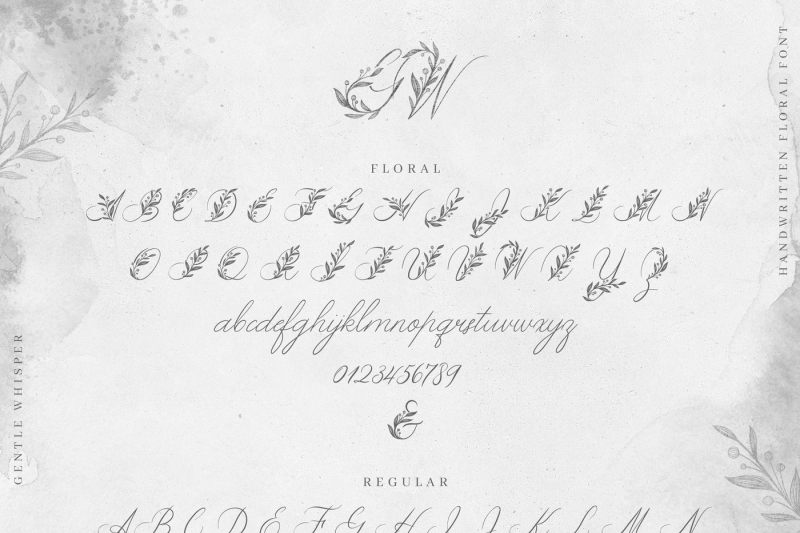 GW
FLORAL
A B C D E F G H I J K L M N
O P Q R S T U V W X Y Z
abcdefghijklmnopqrstuvwxyz
0123456789
&
REGULAR
A B C D E F G H I J K L M N
GENTLE WHISPER
HANDWRITTEN FLORAL FONT